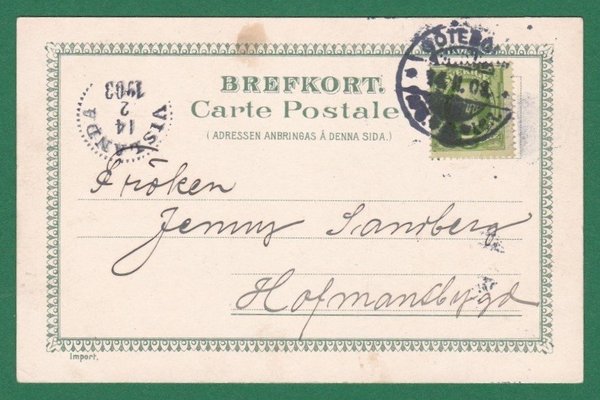 GÖTEBORG
14. 2. 03
BREFKORT.
Carte Postale
(ADRESSEN ANBRINGAS Å DENNA SIDA.)
VISLANDA
14
2
1903
Fröken
Jenny Sandberg
Hofmansbygd
Import.